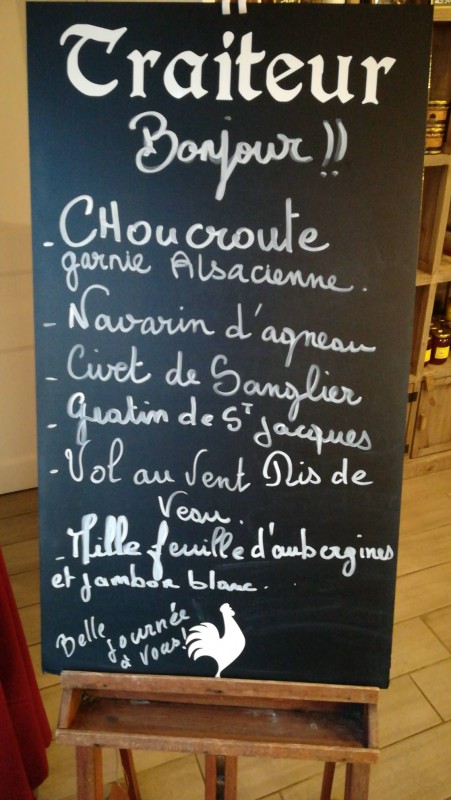 Traiteur
Bonjour !!
- CHoucroute
garnie Alsacienne.
- Navarin d'agneau
- Civet de Sanglier
- Gratin de St Jacques
- Vol au Vent Ris de
Veau.
- Mille feuille d'aubergines
et jambon blanc.
Belle
journée
à vous!